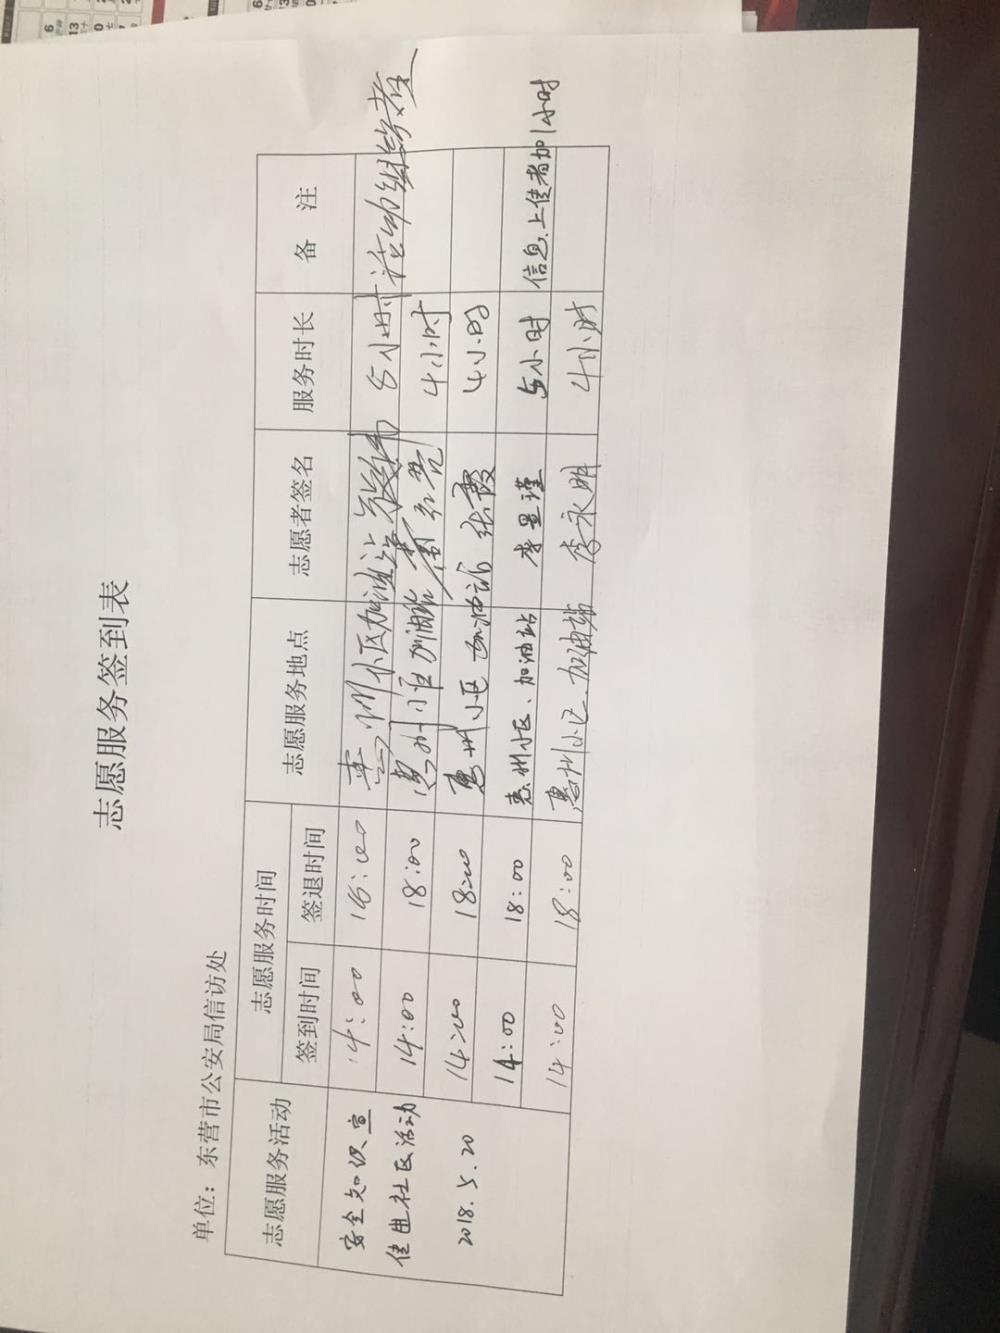 志愿服务签到表
单位：东营市公安局信访处
志愿服务活动 志愿服务时间 志愿服务地点 志愿者签名 服务时长 备 注
签到时间 签退时间
安全知识宣
传进社区活动
2018.5.20
14:00 惠州小区加油站 5小时 活动组织者
14:00 18:00 惠州小区加油站 4小时
14:00 18:00 惠州小区 加油站 张霞 4小时
14:00 18:00 惠州小区、加油站 李昱瑾 5小时 信息上传者加1小时
14:00 18:00 惠州小区、加油站 李永明 4小时